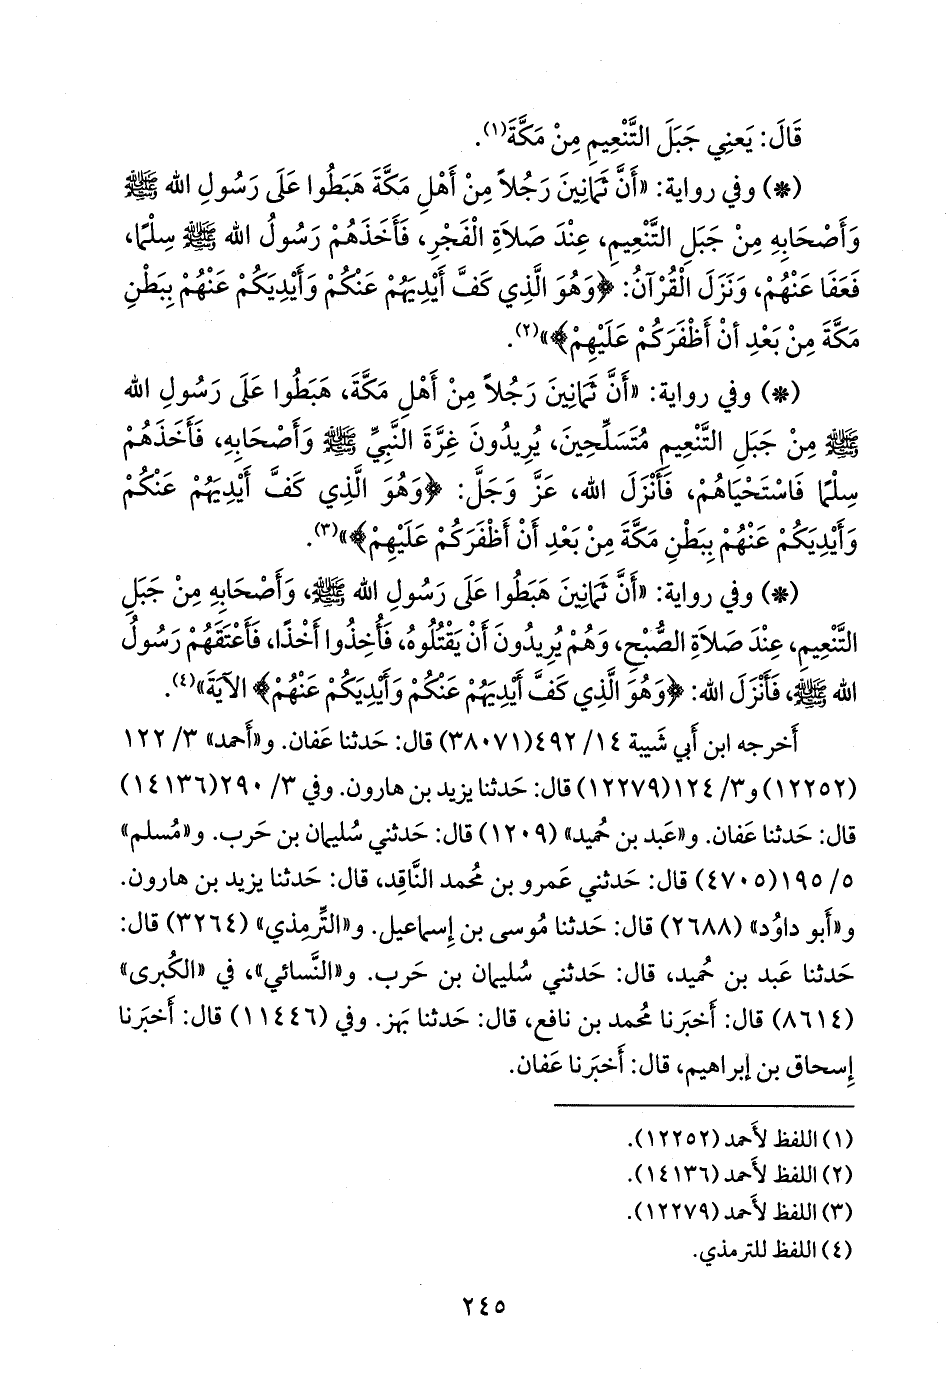 قَالَ: يَعنِي جَبَلَ التَّنْعِيمِ مِنْ مَكَّةَ(١).
(*) وفي رواية: «أَنَّ ثَمَانِينَ رَجُلاً مِنْ أَهْلِ مَكَّةَ هَبَطُوا عَلَى رَسُولِ الله ﷺ
وَأَصْحَابِهِ مِنْ جَبَلِ التَّنْعِيمِ، عِنْدَ صَلاَةِ الْفَجْرِ، فَأَخَذَهُمْ رَسُولُ الله ﷺ سِلْمًا،
فَعَفَا عَنْهُمْ، وَنَزَلَ الْقُرْآنُ: ﴿وَهُوَ الَّذِي كَفَّ أَيْدِيَهُمْ عَنْكُمْ وَأَيْدِيَكُمْ عَنْهُمْ بِبَطْنِ
مَكَّةَ مِنْ بَعْدِ أنْ أَظْفَرَكُمْ عَلَيْهِمْ﴾»(٢).
(*) وفي رواية: «أَنَّ ثَمَانِينَ رَجُلاً مِنْ أَهْلِ مَكَّةَ، هَبَطُوا عَلَى رَسُولِ الله
ﷺ مِنْ جَبَلِ التَّنْعِيمِ مُتَسَلِّحِينَ، يُرِيدُونَ غِرَّةَ النَّبِيِّ ﷺ وَأَصْحَابِهِ، فَأَخَذَهُمْ
سِلْمًا فَاسْتَحْيَاهُمْ، فَأَنْزَلَ الله، عَزَّ وَجَلَّ: ﴿وَهُوَ الَّذِي كَفَّ أَيْدِيَهُمْ عَنْكُمْ
وَأَيْدِيَكُمْ عَنْهُمْ بِبَطْنِ مَكَّةَ مِنْ بَعْدِ أَنْ أَظْفَرَكُمْ عَلَيْهِمْ﴾»(٣).
(*) وفي رواية: «أَنَّ ثَمَانِينَ هَبَطُوا عَلَى رَسُولِ الله ﷺ، وَأَصْحَابِهِ مِنْ جَبَلِ
التَّنْعِيمِ، عِنْدَ صَلاَةِ الصُّبْحِ، وَهُمْ يُرِيدُونَ أَنْ يَقْتُلُوهُ، فَأُخِذُوا أَخْذًا، فَأَعْتَقَهُمْ رَسُولُ
الله ﷺ، فَأَنْزَلَ الله: ﴿وَهُوَ الَّذِي كَفَّ أَيْدِيَهُمْ عَنْكُمْ وَأَيْدِيَكُمْ عَنْهُمْ﴾ الآيَةَ»(٤).
أَخرجه ابن أَبي شيبة ١٤/ ٤٩٢(٣٨٠٧١) قال: حَدثنا عَفان. و«أَحمد» ٣/ ١٢٢
(١٢٢٥٢) و٣/ ١٢٤(١٢٢٧٩) قال: حَدثنا يزيد بن هارون. وفي ٣/ ٢٩٠(١٤١٣٦)
قال: حَدثنا عَفان. و«عَبد بن حُميد» (١٢٠٩) قال: حَدثني سُليمان بن حَرب. و«مُسلم»
٥/ ١٩٥(٤٧٠٥) قال: حَدثني عَمرو بن مُحمد النَّاقِد، قال: حَدثنا يزيد بن هارون.
و«أَبو داوُد» (٢٦٨٨) قال: حَدثنا مُوسى بن إِسماعيل. و«التِّرمِذي» (٣٢٦٤) قال:
حَدثنا عَبد بن حُميد، قال: حَدثني سُليمان بن حَرب. و«النَّسائي»، في «الكُبرى»
(٨٦١٤) قال: أَخبَرنا مُحمد بن نافع، قال: حَدثنا بَهز. وفي (١١٤٤٦) قال: أَخبَرنا
إِسحاق بن إِبراهيم، قال: أَخبَرنا عَفان.
(١) اللفظ لأَحمد (١٢٢٥٢).
(٢) اللفظ لأَحمد (١٤١٣٦).
(٣) اللفظ لأَحمد (١٢٢٧٩).
(٤) اللفظ للترمذي.
٢٤٥